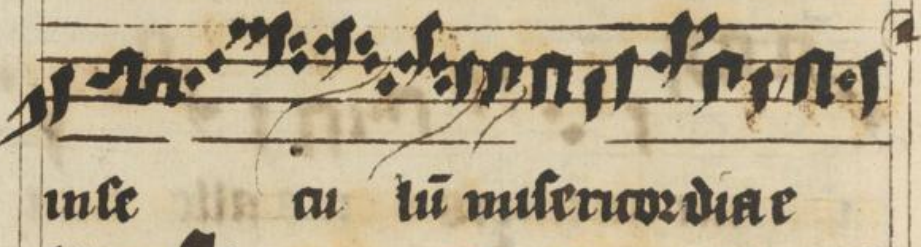 inse cu lū misericordiae